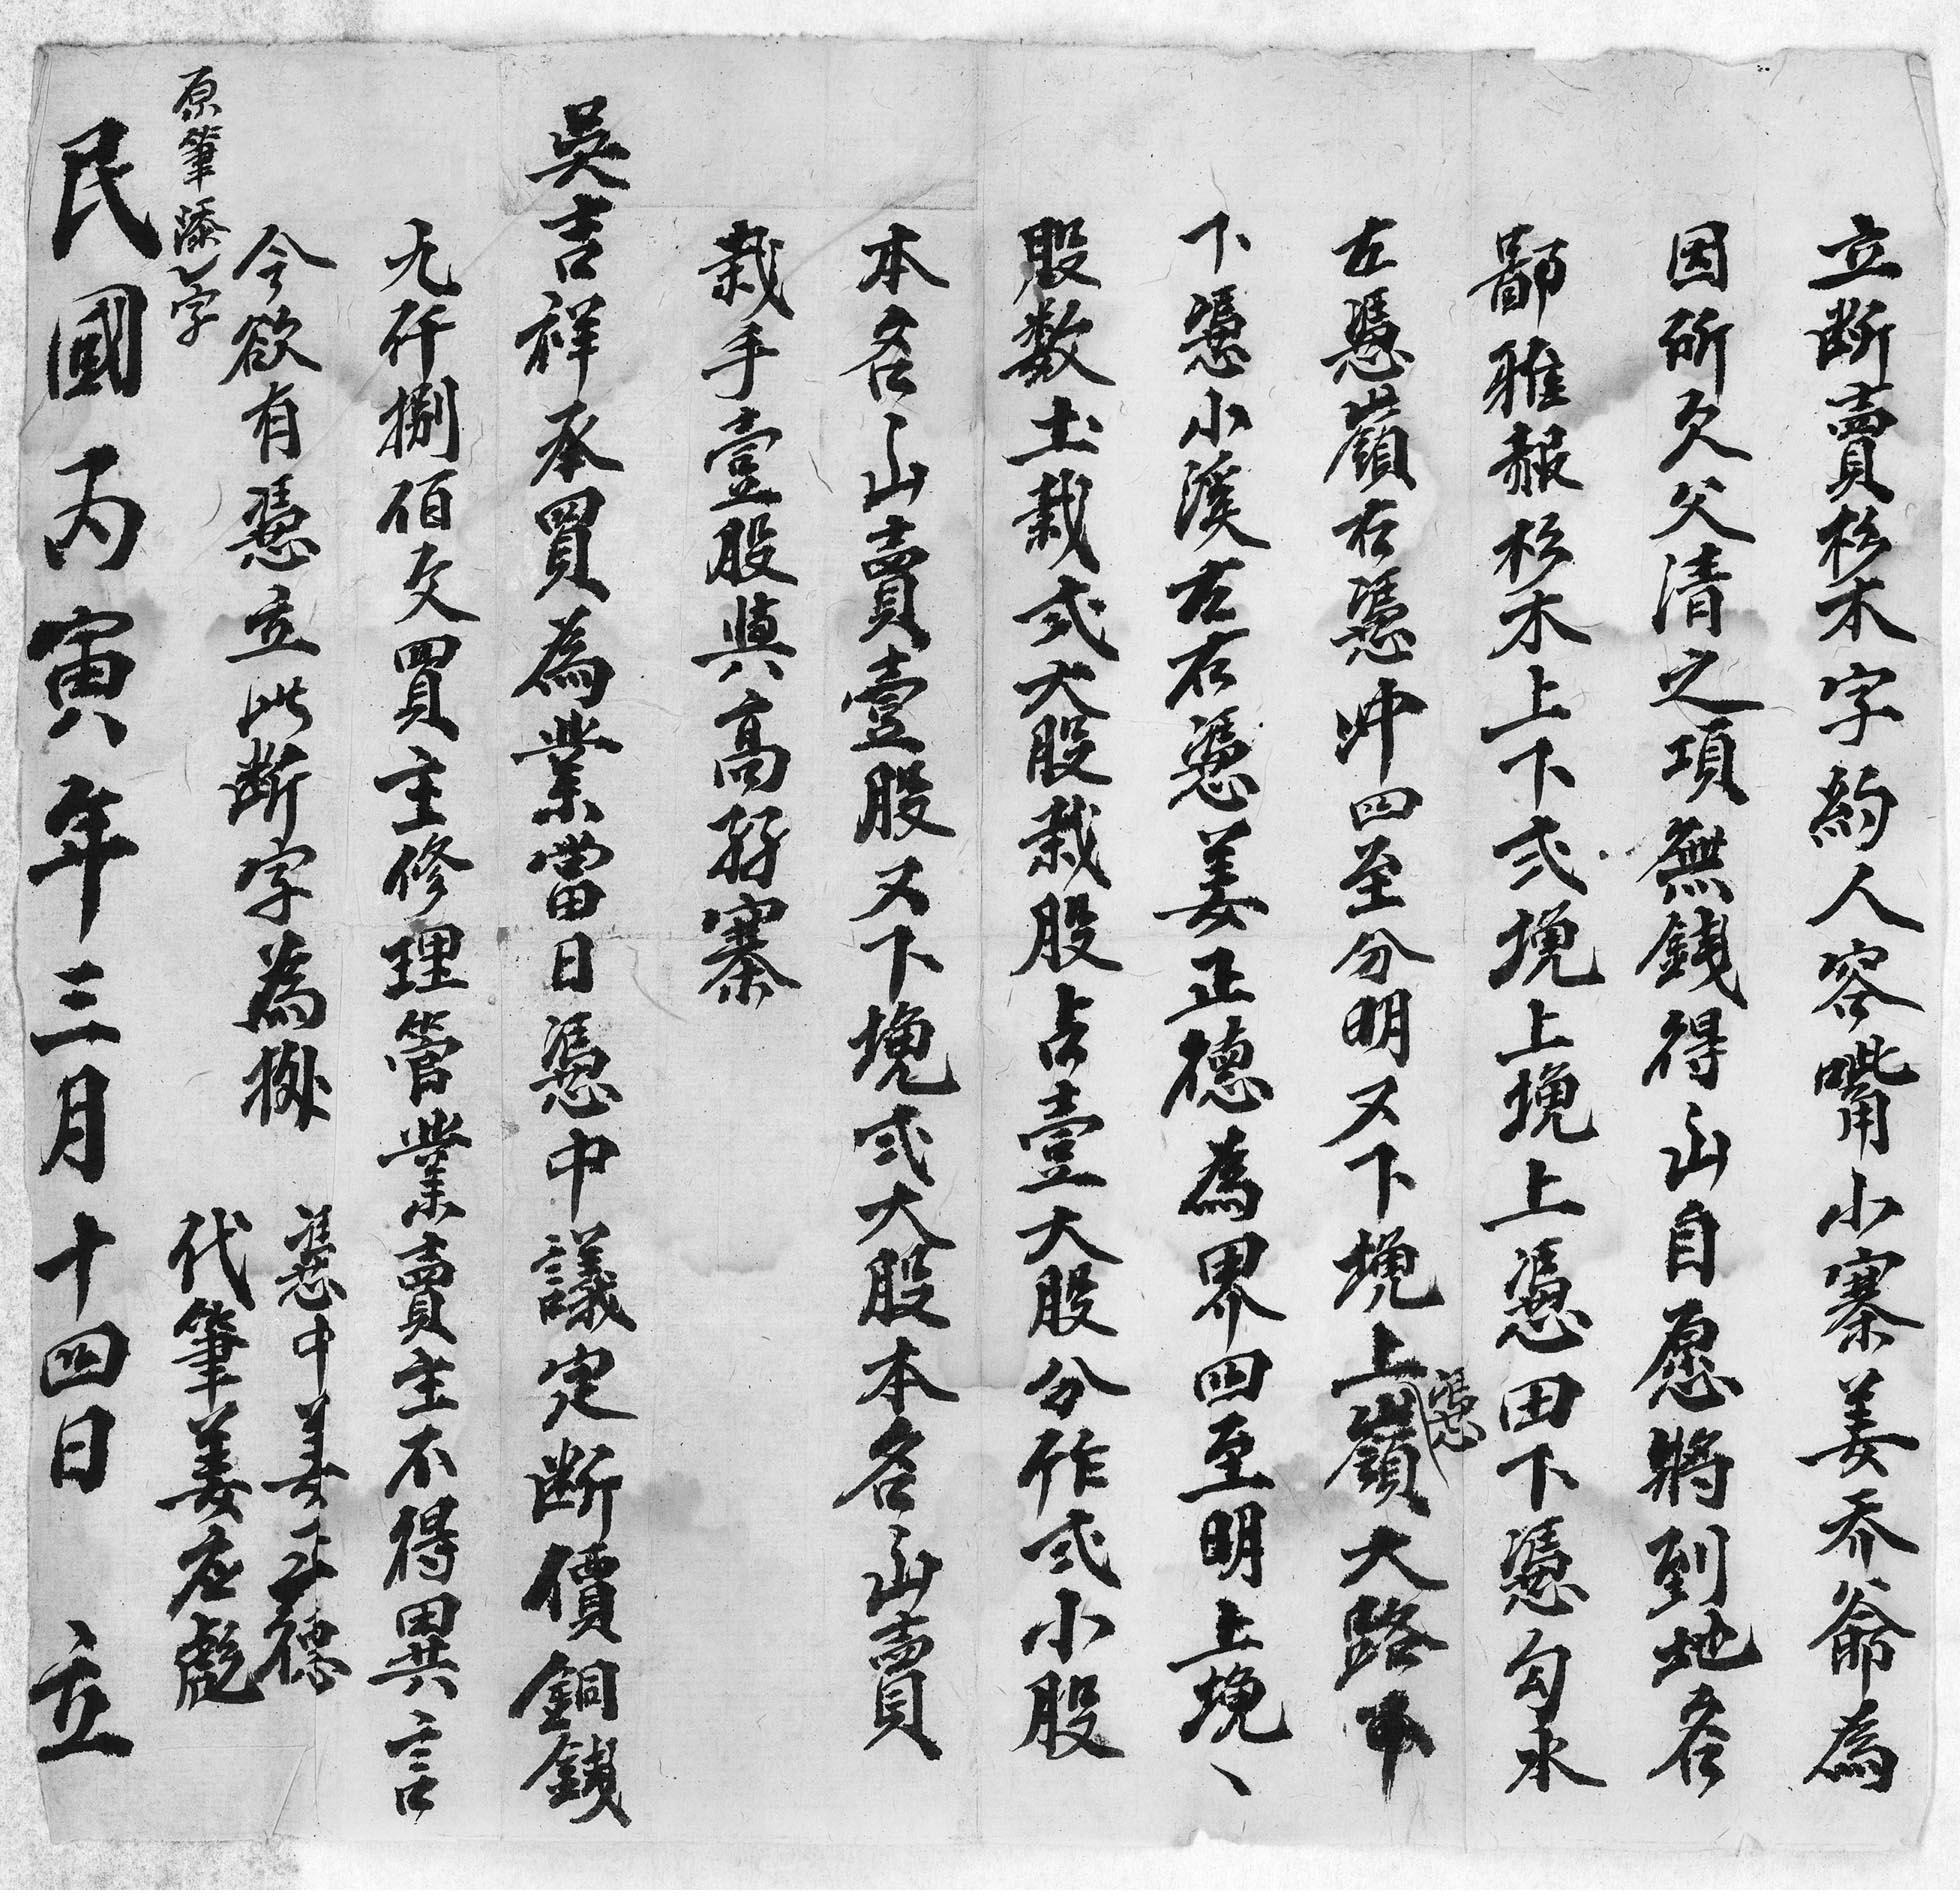 立断賣杉木字約人容嘴小寨姜乔爺為
因所欠父清之項無錢得山自愿將到地名
鄙雅赧杉木上下弍塊上塊上憑田下憑勾水
左憑嶺右憑冲四至分明又下塊上憑嶺大路下
下憑小溪左右憑姜正德為界四至明上塊、
股数土栽弍大股栽股占壹大股分作弍小股
本名山賣壹股又下塊弍大股本名山賣
栽手壹股與高孖寨
吳吉祥承買為業當日憑中議定断價銅錢
九仟捌佰文買主修理管業賣主不得異言
今欲有憑立此断字為據
憑中姜正德
代筆姜在彪
原筆添乙字
民國丙寅年三月十四日 立